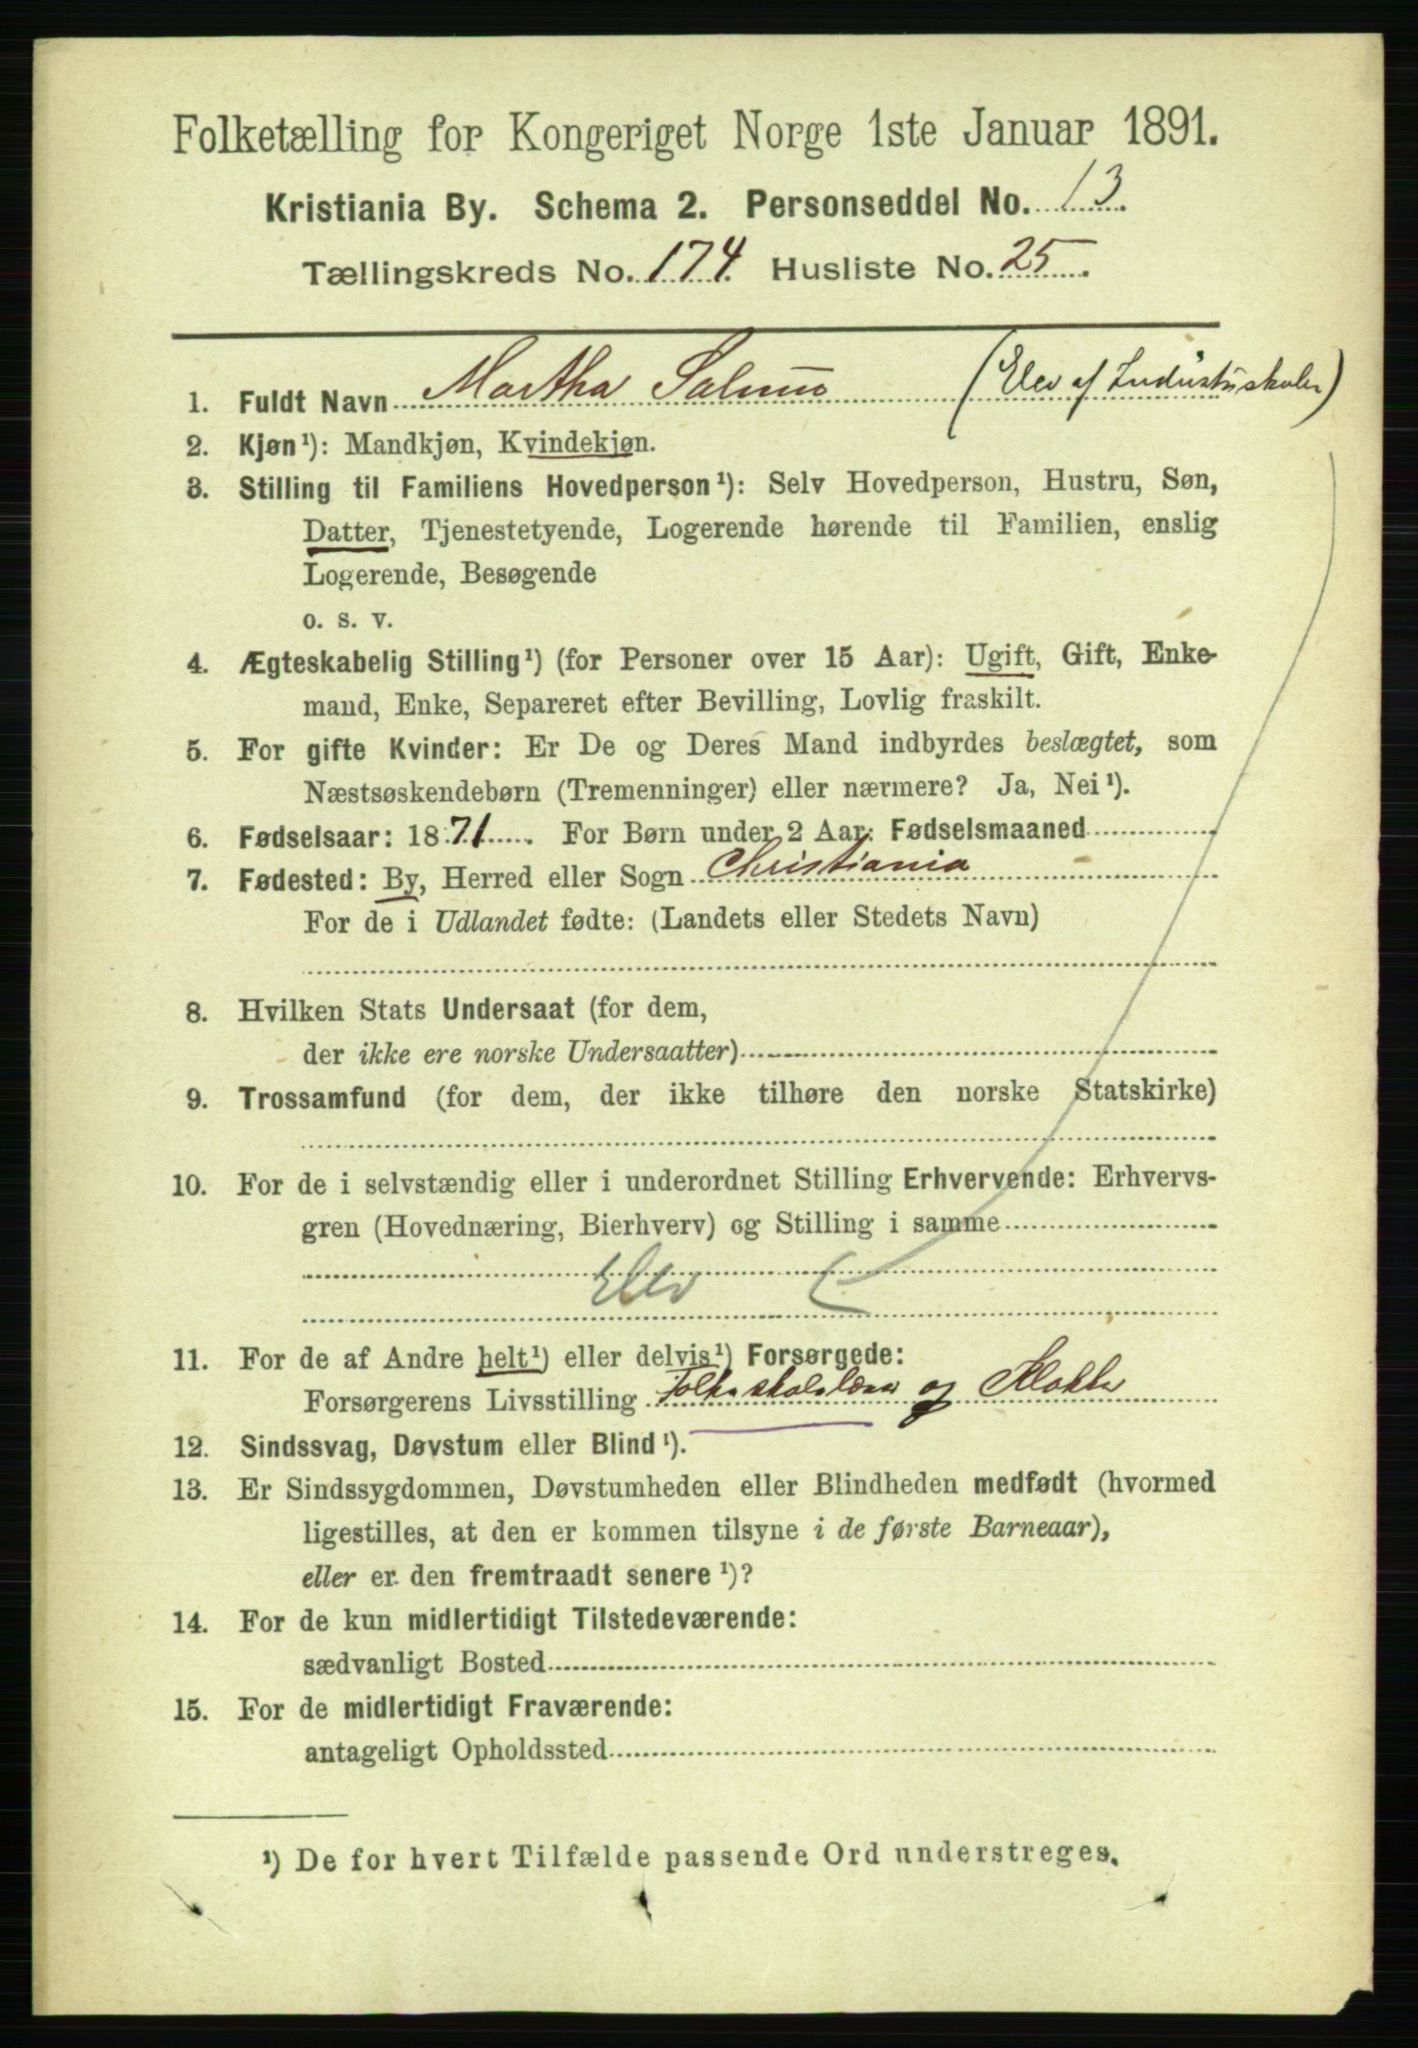 Folketælling for Kongeriget Norge 1ste Januar 1891.
Kristiania By. Schema 2. Personseddel No. 13.
Tællingskreds No. 174 Husliste No. 25.
1. Fuldt Navn Martha (Elev af Industriskolen)
2. Kjøn¹): Mandkjøn, Kvindekjøn.
3. Stilling til Familiens Hovedperson¹): Selv Hovedperson, Hustru, Søn,
Datter, Tjenestetyende, Logerende hørende til Familien, enslig
Logerende, Besøgende
o. s. v.
4. Ægteskabelig Stilling¹) (for Personer over 15 Aar): Ugift, Gift, Enke-
mand, Enke, Separeret efter Bevilling, Lovlig fraskilt.
5. For gifte Kvinder: Er De og Deres Mand indbyrdes beslægtet, som
Næstsøskendebørn (Tremenninger) eller nærmere? Ja, Nei¹).
6. Fødselsaar: 1871. For Børn under 2 Aar: Fødselsmaaned
7. Fødested: By, Herred eller Sogn Christiania
For de i Udlandet fødte: (Landets eller Stedets Navn)
8. Hvilken Stats Undersaat (for dem,
der ikke ere norske Undersaatter)
9. Trossamfund (for dem, der ikke tilhøre den norske Statskirke)
10. For de i selvstændig eller i underordnet Stilling Erhvervende: Erhvervs-
gren (Hovednæring, Bierhverv) og Stilling i samme
Elev
11. For de af Andre helt¹) eller delvis¹) Forsørgede:
Forsørgerens Livsstilling Folkeskolelærer og Klokker
12. Sindssvag, Døvstum eller Blind¹).
13. Er Sindssygdommen, Døvstumheden eller Blindheden medfødt (hvormed
ligestilles, at den er kommen tilsyne i de første Barneaar),
eller er den fremtraadt senere¹)?
14. For de kun midlertidigt Tilstedeværende:
sædvanligt Bosted
15. For de midlertidigt Fraværende:
antageligt Opholdssted
¹) De for hvert Tilfælde passende Ord understreges.